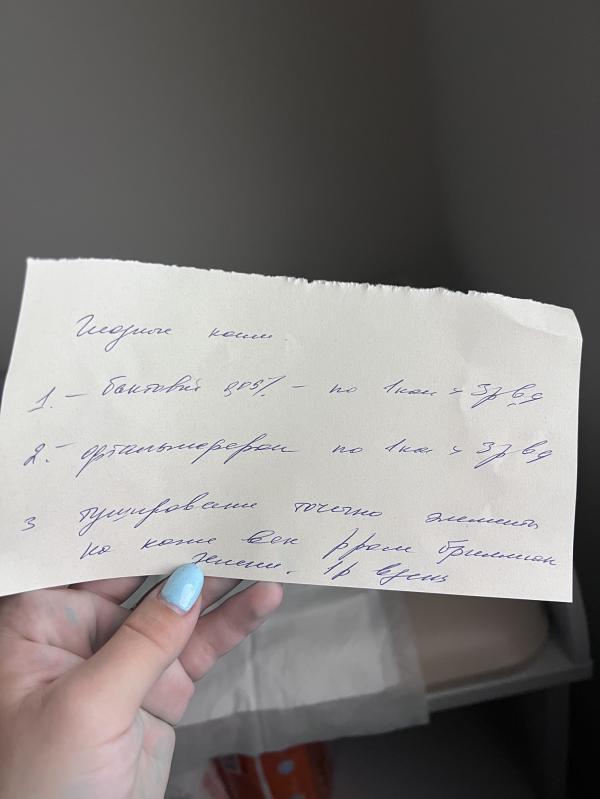 Глазные капли
1. – бактовый 0,05% – по 1 кап х 3р в д
2. – офтальмоферон по 1 кап х 3р в д
3 туширование точечно элементы
на коже век р-ром бриллиан
зелени. 1р в день